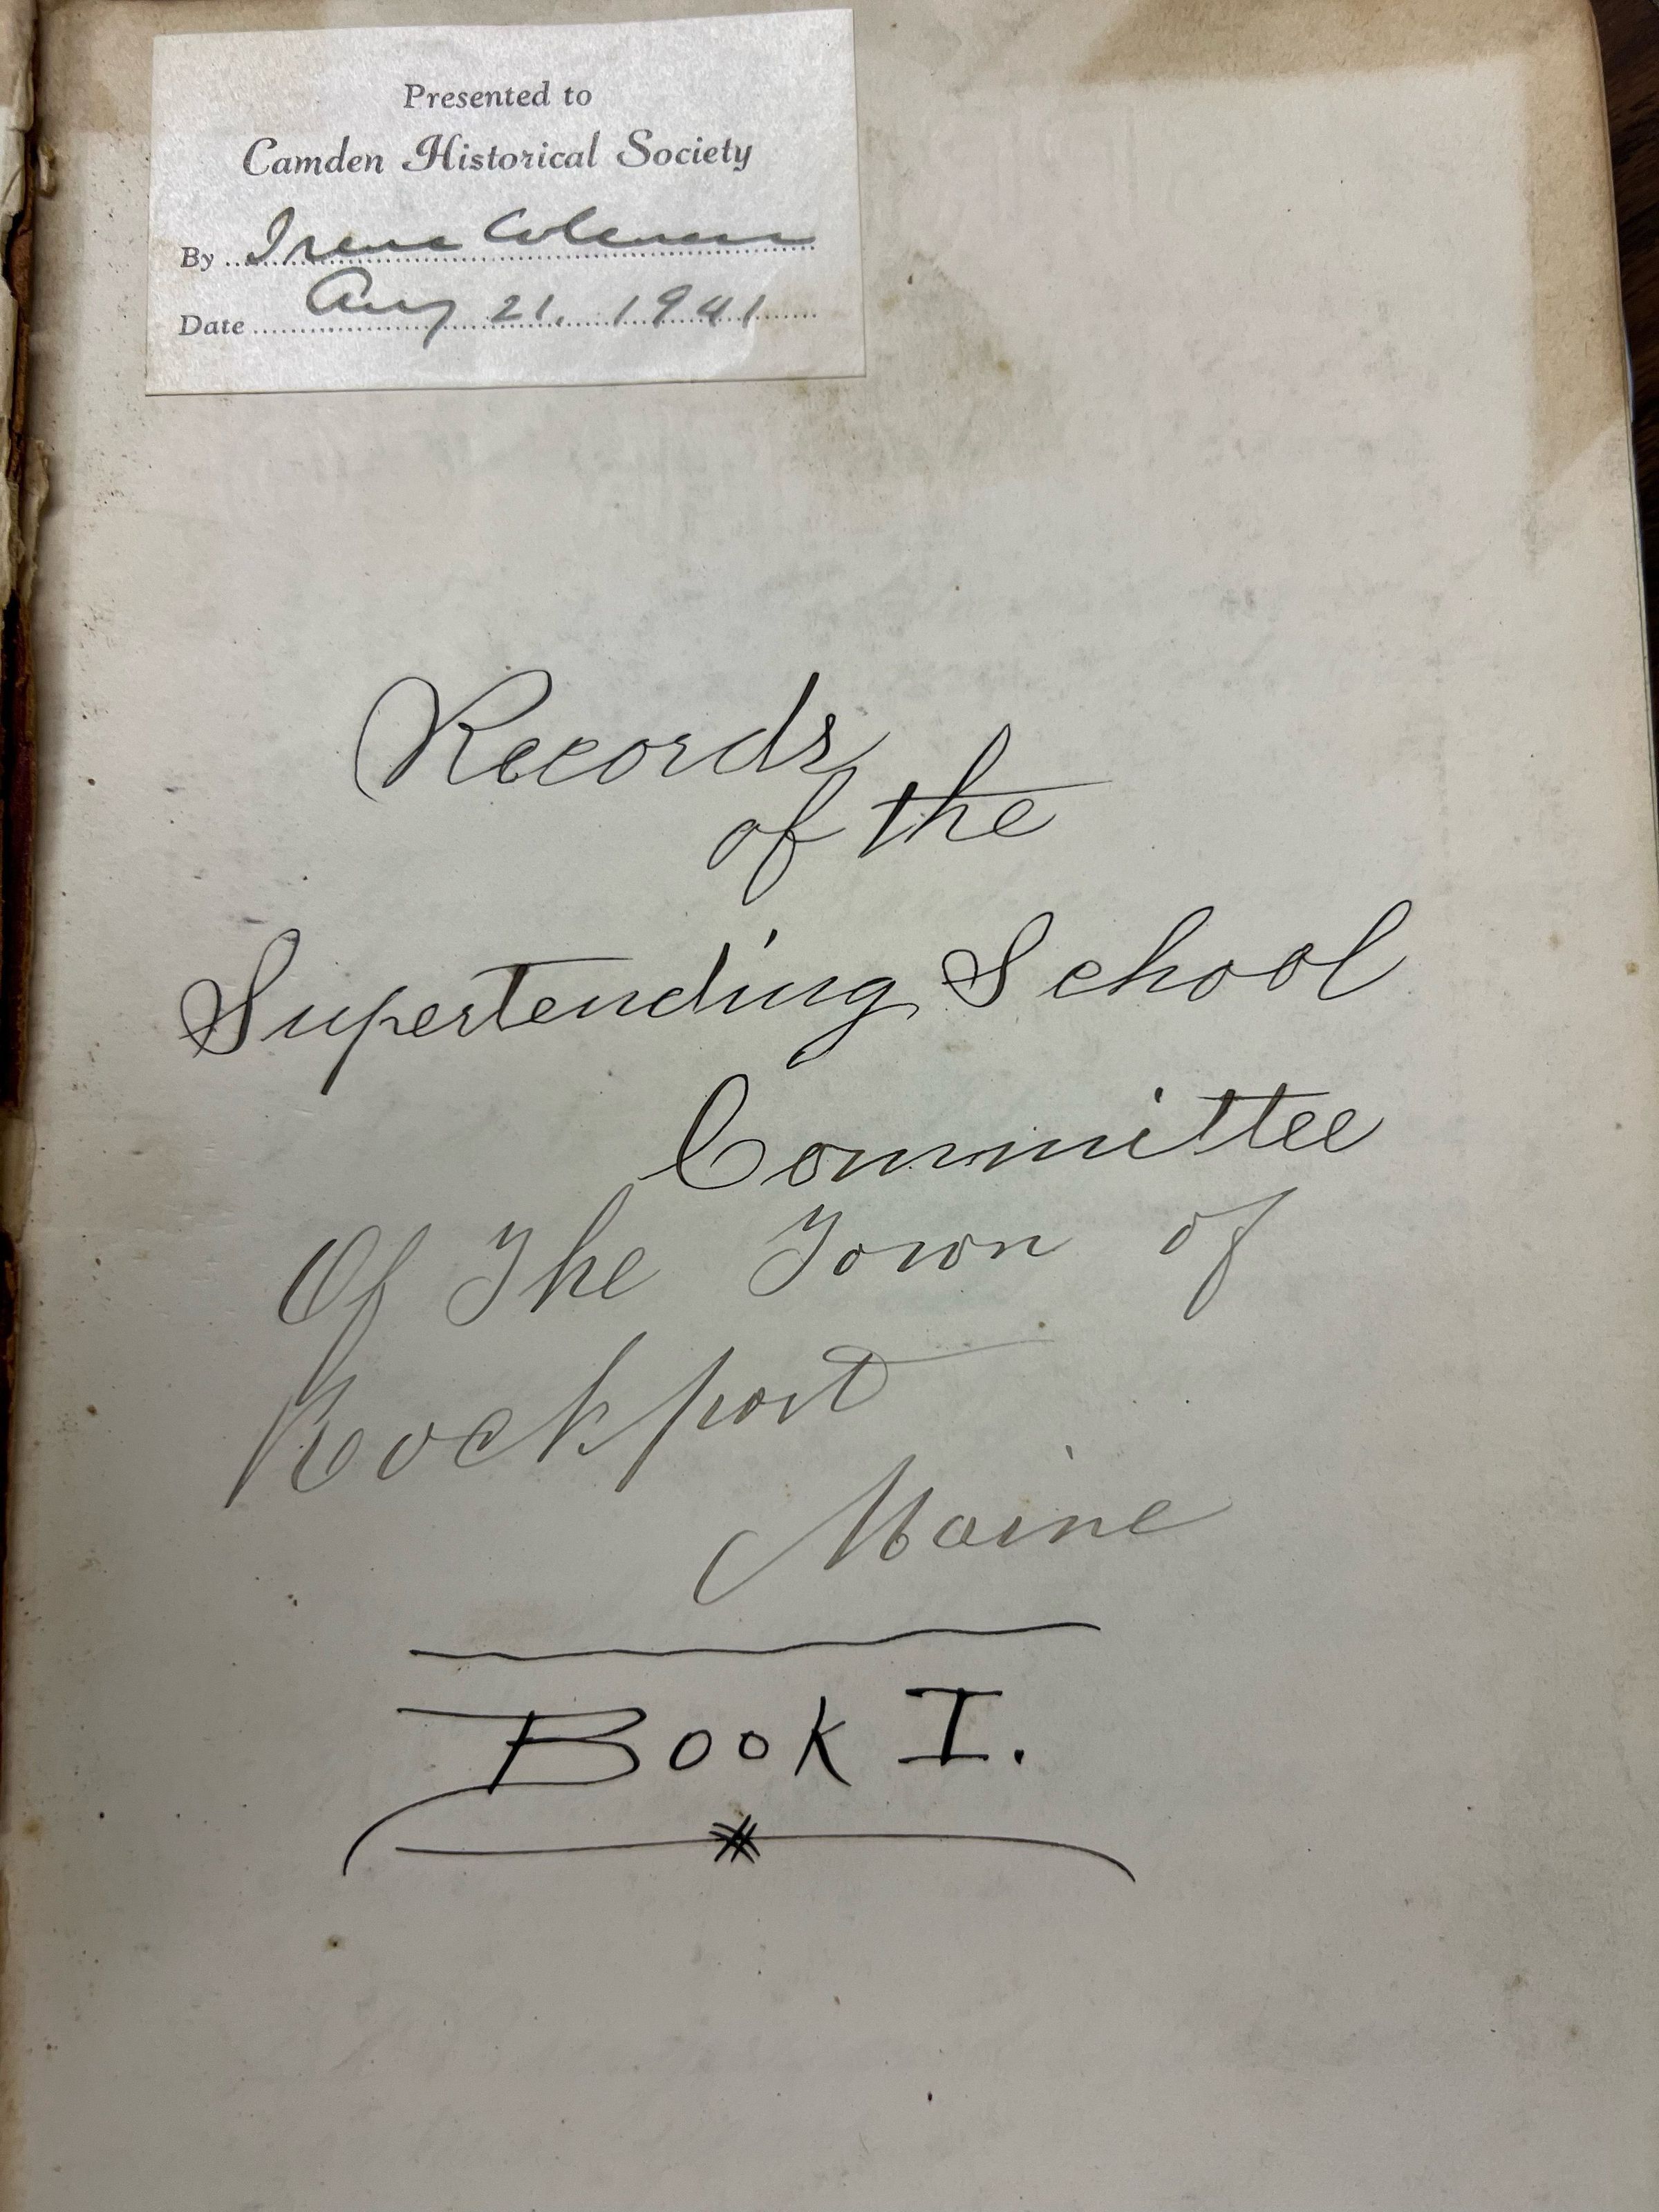 Presented to
Camden Historical Society
By Irene Coleman
Date Aug 21. 1941
Records
of the
Supertending School
Committee
Of The Town of
Rockport
Maine
Book I.